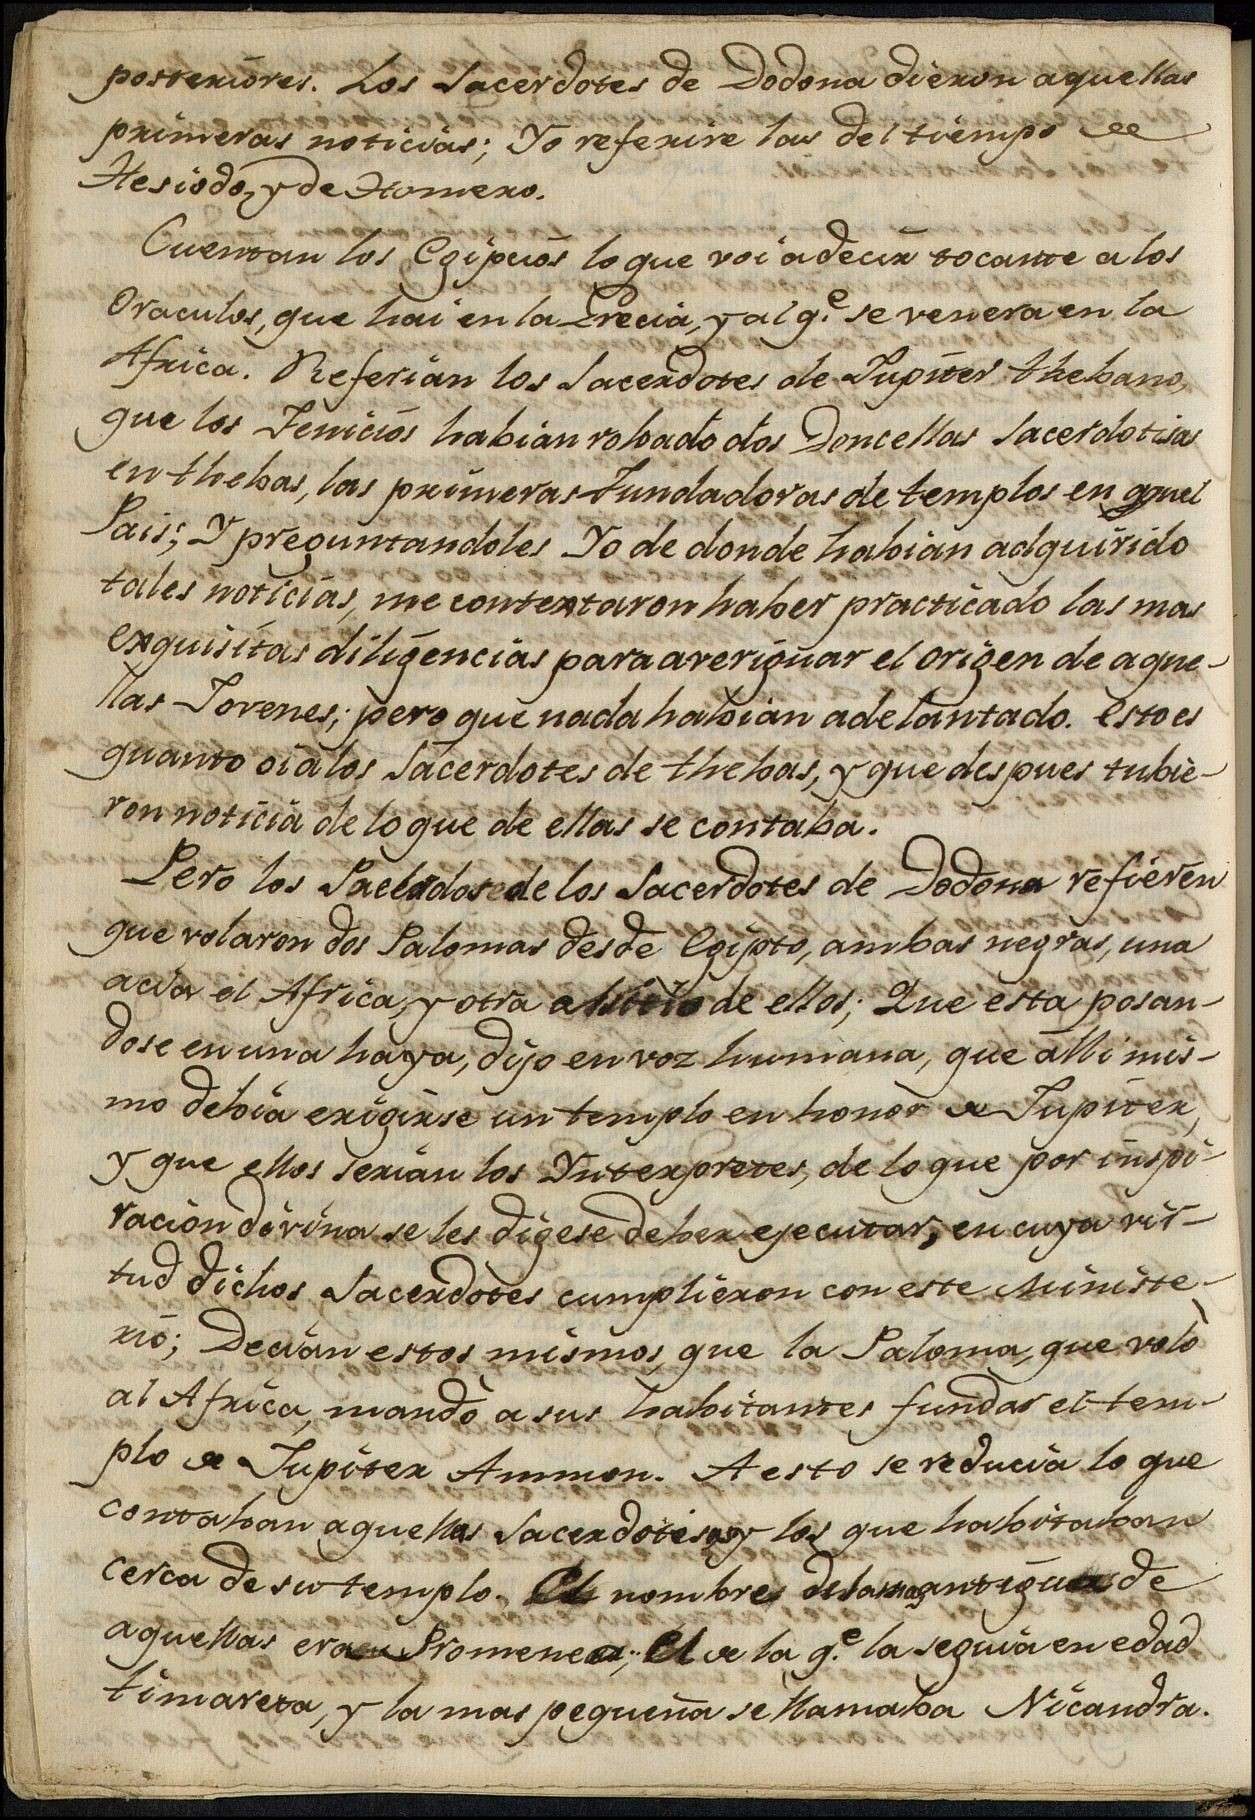 posteriores. Los Sacerdotes de Dodona dieron aquellas
primeras noticias; Yo referire las del tiempo de
Hesiodo, y de Homero.
Cuentan los Egipcios lo que voi a decir tocante a los
Oraculos, que hai en la Grecia, y al q.e se venera en la
Africa. Referian los Sacerdotes de Jupiter thebano,
que los Fenicios habian robado dos Doncellas Sacerdotisas
en thebas, las primeras Fundadoras de templos en aquel
Pais; Y preguntandoles Yo de donde habian adquirido
tales noticias, me contextaron haber practicado las mas
exquisitas diligencias para averiguar el origen de aque-
llas Jovenes; pero que nada habian adelantado. Esto es
quanto oi a los Sacerdotes de thebas, y que despues tubie-
ron noticia de lo que de ellas se contaba.
Pero los de los Sacerdotes de Dodona refieren
que volaron dos Palomas desde Egipto, ambas negras, una
acia el Africa, y otra de ellos; Que esta posan-
dose en una haya, dijo en voz humana, que alli mis-
mo debia erigirse un templo en honor de Jupiter,
y que ellos serian los Ynterpretes, de lo que por inspi-
racion divina se les digese deber ejecutar, en cuya vir-
tud dichos Sacerdotes cumplieron con este Ministe-
rio; Decian estos mismos, que la Paloma, que volò
al Africa, mandò a sus habitantes fundar el tem-
plo de Jupiter Ammon. A esto se reducia lo que
contaban aquellas Sacerdotisas y los que habitaban
cerca de su templo. El nombre de la mas antigua de
aquellas era Promenea; El de la q.e la seguia en edad
timareta, y la mas pequeña se llamaba Nicandra.